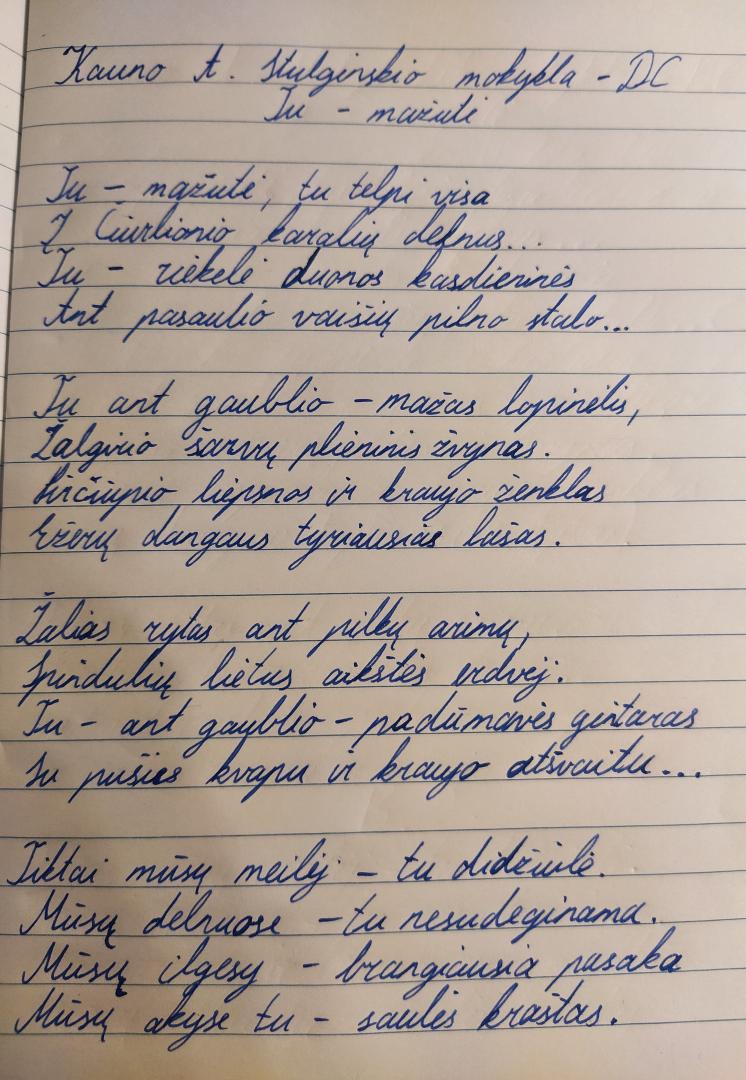 Kauno A. Stulginskio mokykla - DC
Tu - mažutė
Tu - mažutė, tu telpi visa
Į Čiurlionio karalių delnus...
Tu - riekelė duonos kasdieninės
Ant pasaulio vaišių pilno stalo...
Tu ant gaublio - mažas lopinėlis,
Žalgirio šarvų plieninis žvynas.
Pirčiupio liepsnos ir kraujo ženklas
Ežerų dangaus tyriausias lašas.
Žalias rytas ant pilkų arimų,
Spindulių lietus aikštės erdvėj.
Tu - ant gaublio - padūmavęs gintaras
Su pušies kvapu ir kraujo atšvaitu...
Tiktai mūsų meilėj - tu didžiulė.
Mūsų delnuose - tu nesudeginama.
Mūsų ilgesy - brangiausia pasaka
Mūsų akyse tu - saulės kraštas.